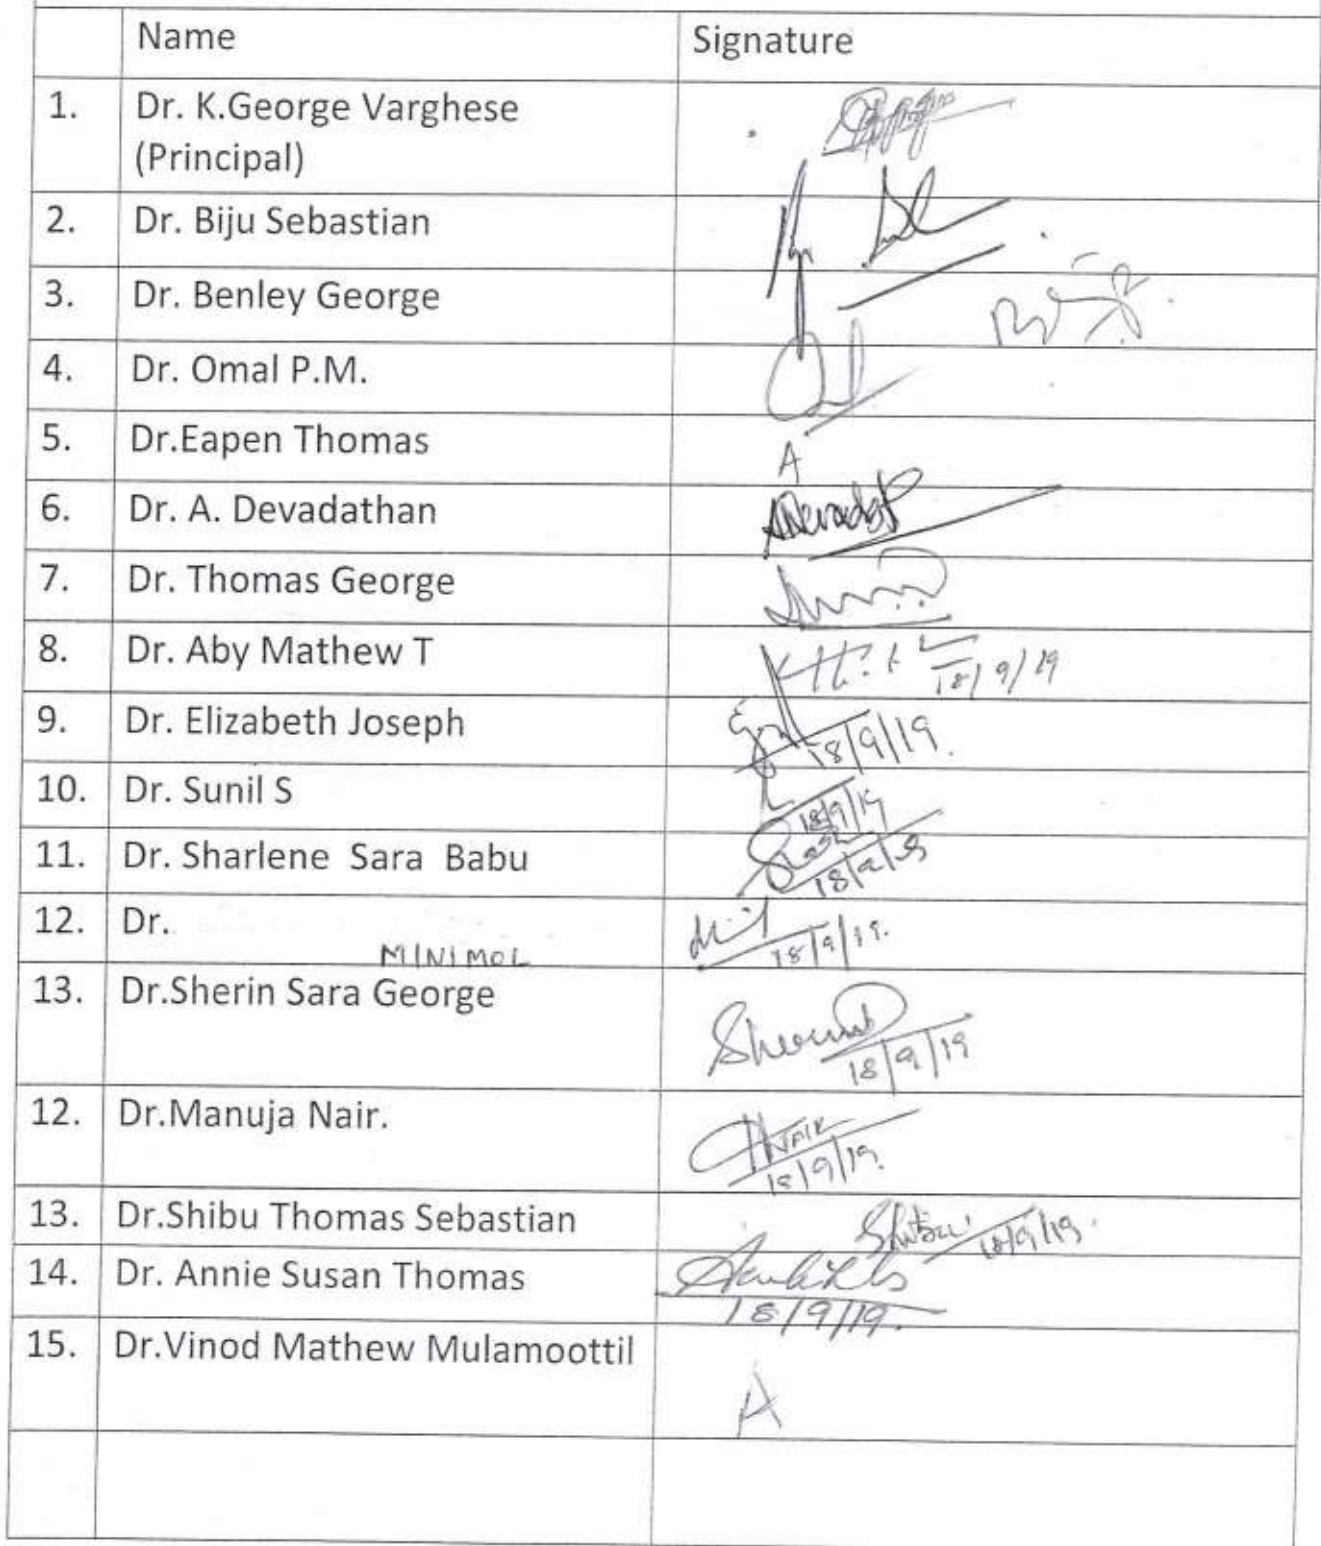 Name Signature
1. Dr. K.George Varghese
(Principal)
2. Dr. Biju Sebastian
3. Dr. Benley George
4. Dr. Omal P.M.
5. Dr.Eapen Thomas A
6. Dr. A. Devadathan
7. Dr. Thomas George
8. Dr. Aby Mathew T 18/9/19
9. Dr. Elizabeth Joseph 18/9/19.
10. Dr. Sunil S 18/9/19
11. Dr. Sharlene Sara Babu
12. Dr. MINIMOL 18/9/19.
13. Dr.Sherin Sara George 18/9/19
12. Dr.Manuja Nair. NAIR
18/9/19.
13. Dr.Shibu Thomas Sebastian Shibu 18/9/19.
14. Dr. Annie Susan Thomas
18/9/19.
15. Dr.Vinod Mathew Mulamoottil
A